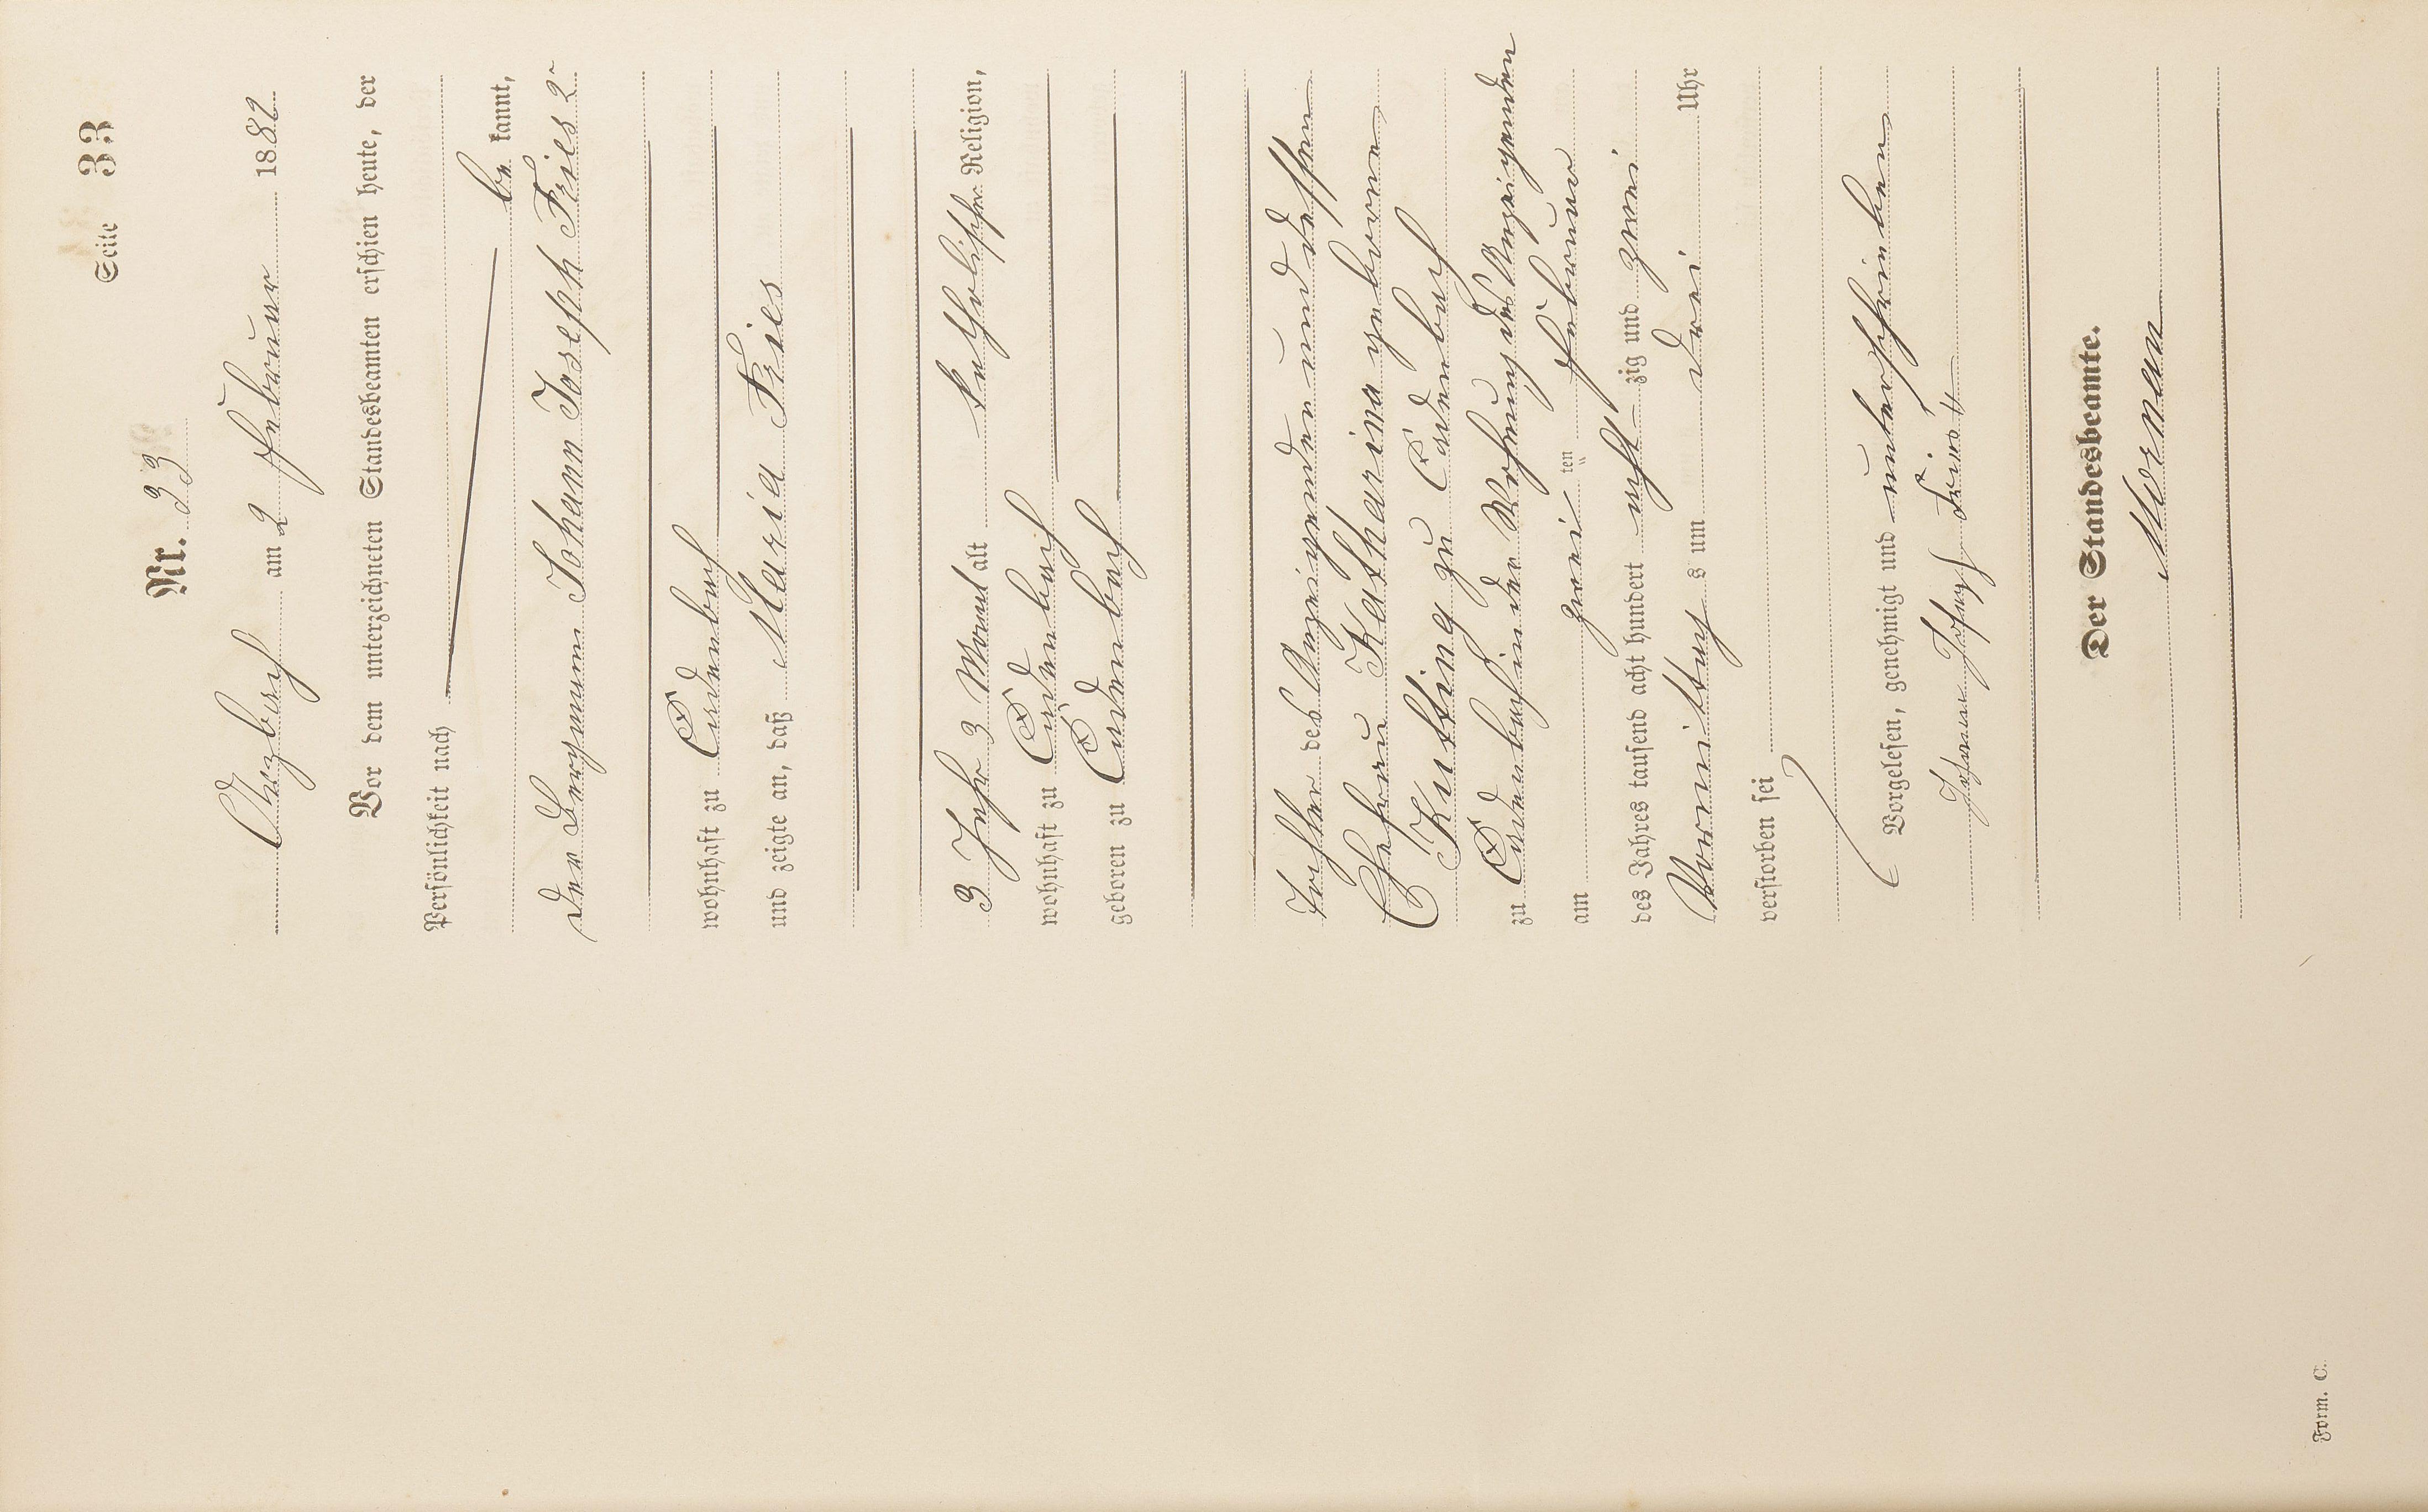 Seite 33
Nr. 33
Arzbach am 2 Februar 1882
Vor dem unterzeichneten Standesbeamten erschien heute, der
Persönlichkeit nach
be kannt,
der Bergmann Johann Joseph Fries 2r
wohnhaft zu Cadenbach
und zeigte an, daß Maria Fries
3 Jahr 3 Monat alt katholischer Religion,
wohnhaft zu Cadenbach
geboren zu Cadenbach
Tochter des Anzeigenden und dessen
Ehefrau Katharina geborene
Kutting zu Cadenbach
zu Cadenbach in der Wohnung des Anzeigenden
am zwei ten Februar
des Jahres tausend acht hundert acht zig und zwei
Vormittag s um drei Uhr
verstorben sei
Vorgelesen, genehmigt und unterschrieben
Johann Joseph Fries II
Der Standesbeamte.
Form. C.